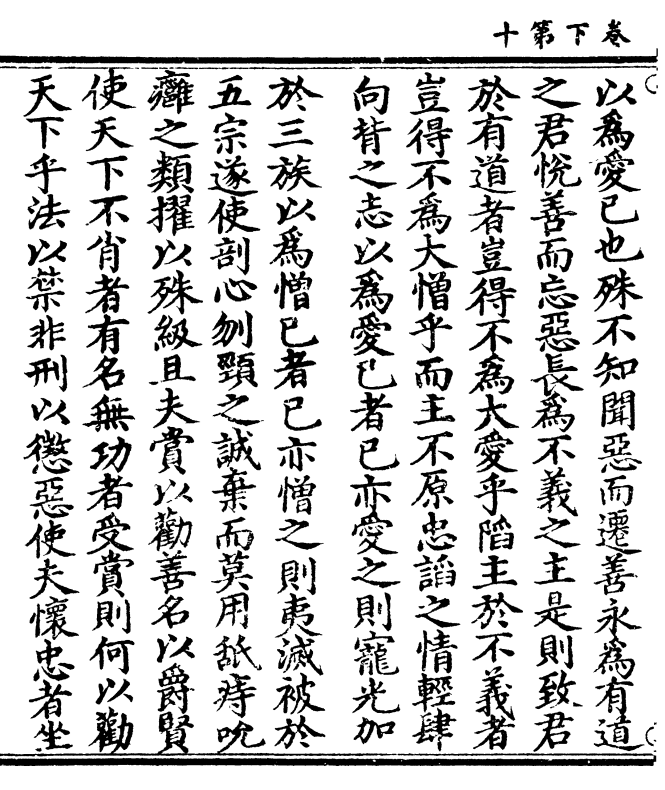 卷下第十
以爲愛已也殊不知聞惡而遷善永爲有道
之君悅善而忘惡長爲不義之主是則致君
於有道者豈得不爲大愛乎陷主於不義者
豈得不爲大憎乎而主不原忠謟之情輕肆
向背之志以爲愛已者已亦愛之則寵光加
於三族以爲憎已者已亦憎之則夷滅被於
五宗遂使剖心刎頸之誠棄而莫用舐痔吮
癰之類擢以殊級且夫賞以勸善名以爵賢
使天下不肖者有名無功者受賞則何以勸
天下乎法以禁非刑以懲惡使夫懷忠者坐